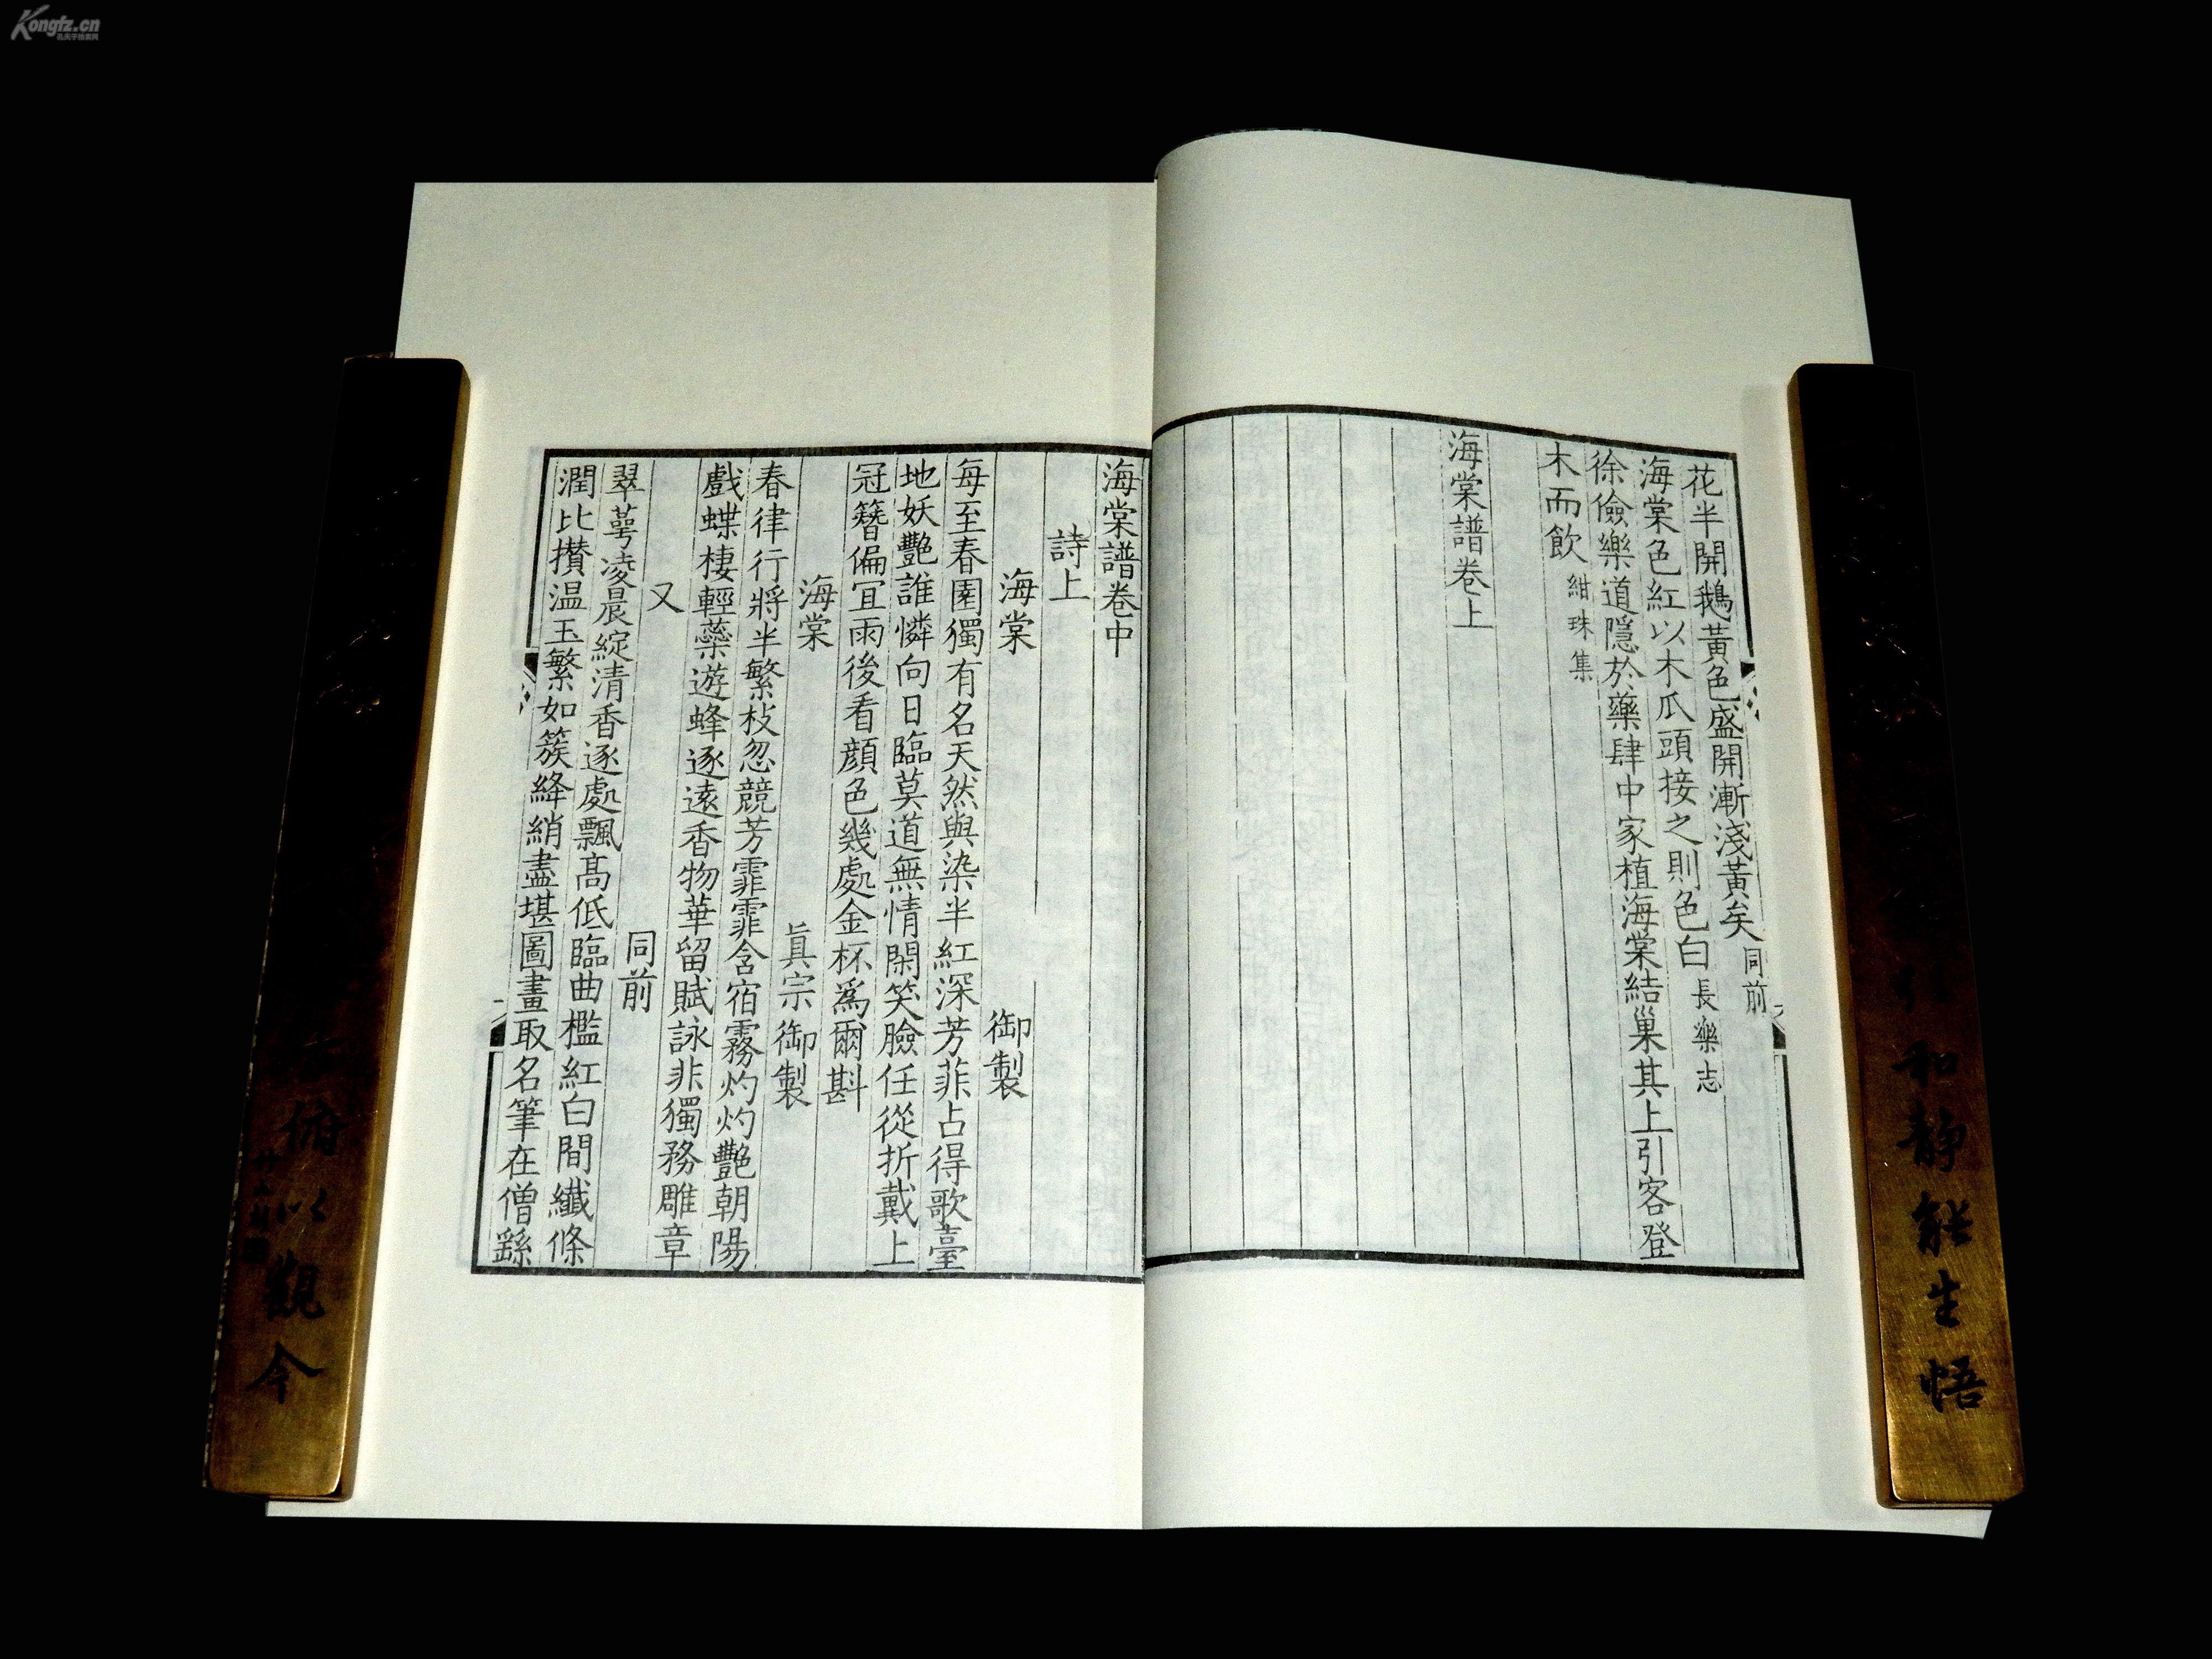 Kongfz.cn
孔夫子拍賣网
花半開鵝黃色盛開漸淺黃矣同前
海棠色紅以木瓜頭接之則色白長樂志
徐儉樂道隱於藥肆中家植海棠結巢其上引客登
木而飲紺珠集
海棠譜卷上
海棠譜卷中
詩上
海棠 御製
每至春園獨有名天然與染半紅深芳菲占得歌臺
地妖艷誰憐向日臨莫道無情閑笑臉任從折戴上
冠簪偏宜雨後看顏色幾處金杯爲爾斟
海棠 眞宗御製
春律行將半繁枝忽競芳霏霏含宿霧灼灼艷朝陽
戲蝶棲輕蘂遊蜂逐遠香物華留賦詠非獨務雕章
又 同前
翠蕚凌晨綻清香逐處飄高低臨曲檻紅白間纖條
潤比攅温玉繁如簇絳綃盡堪圖畫取名筆在僧繇
俯以觀今
和靜能生悟